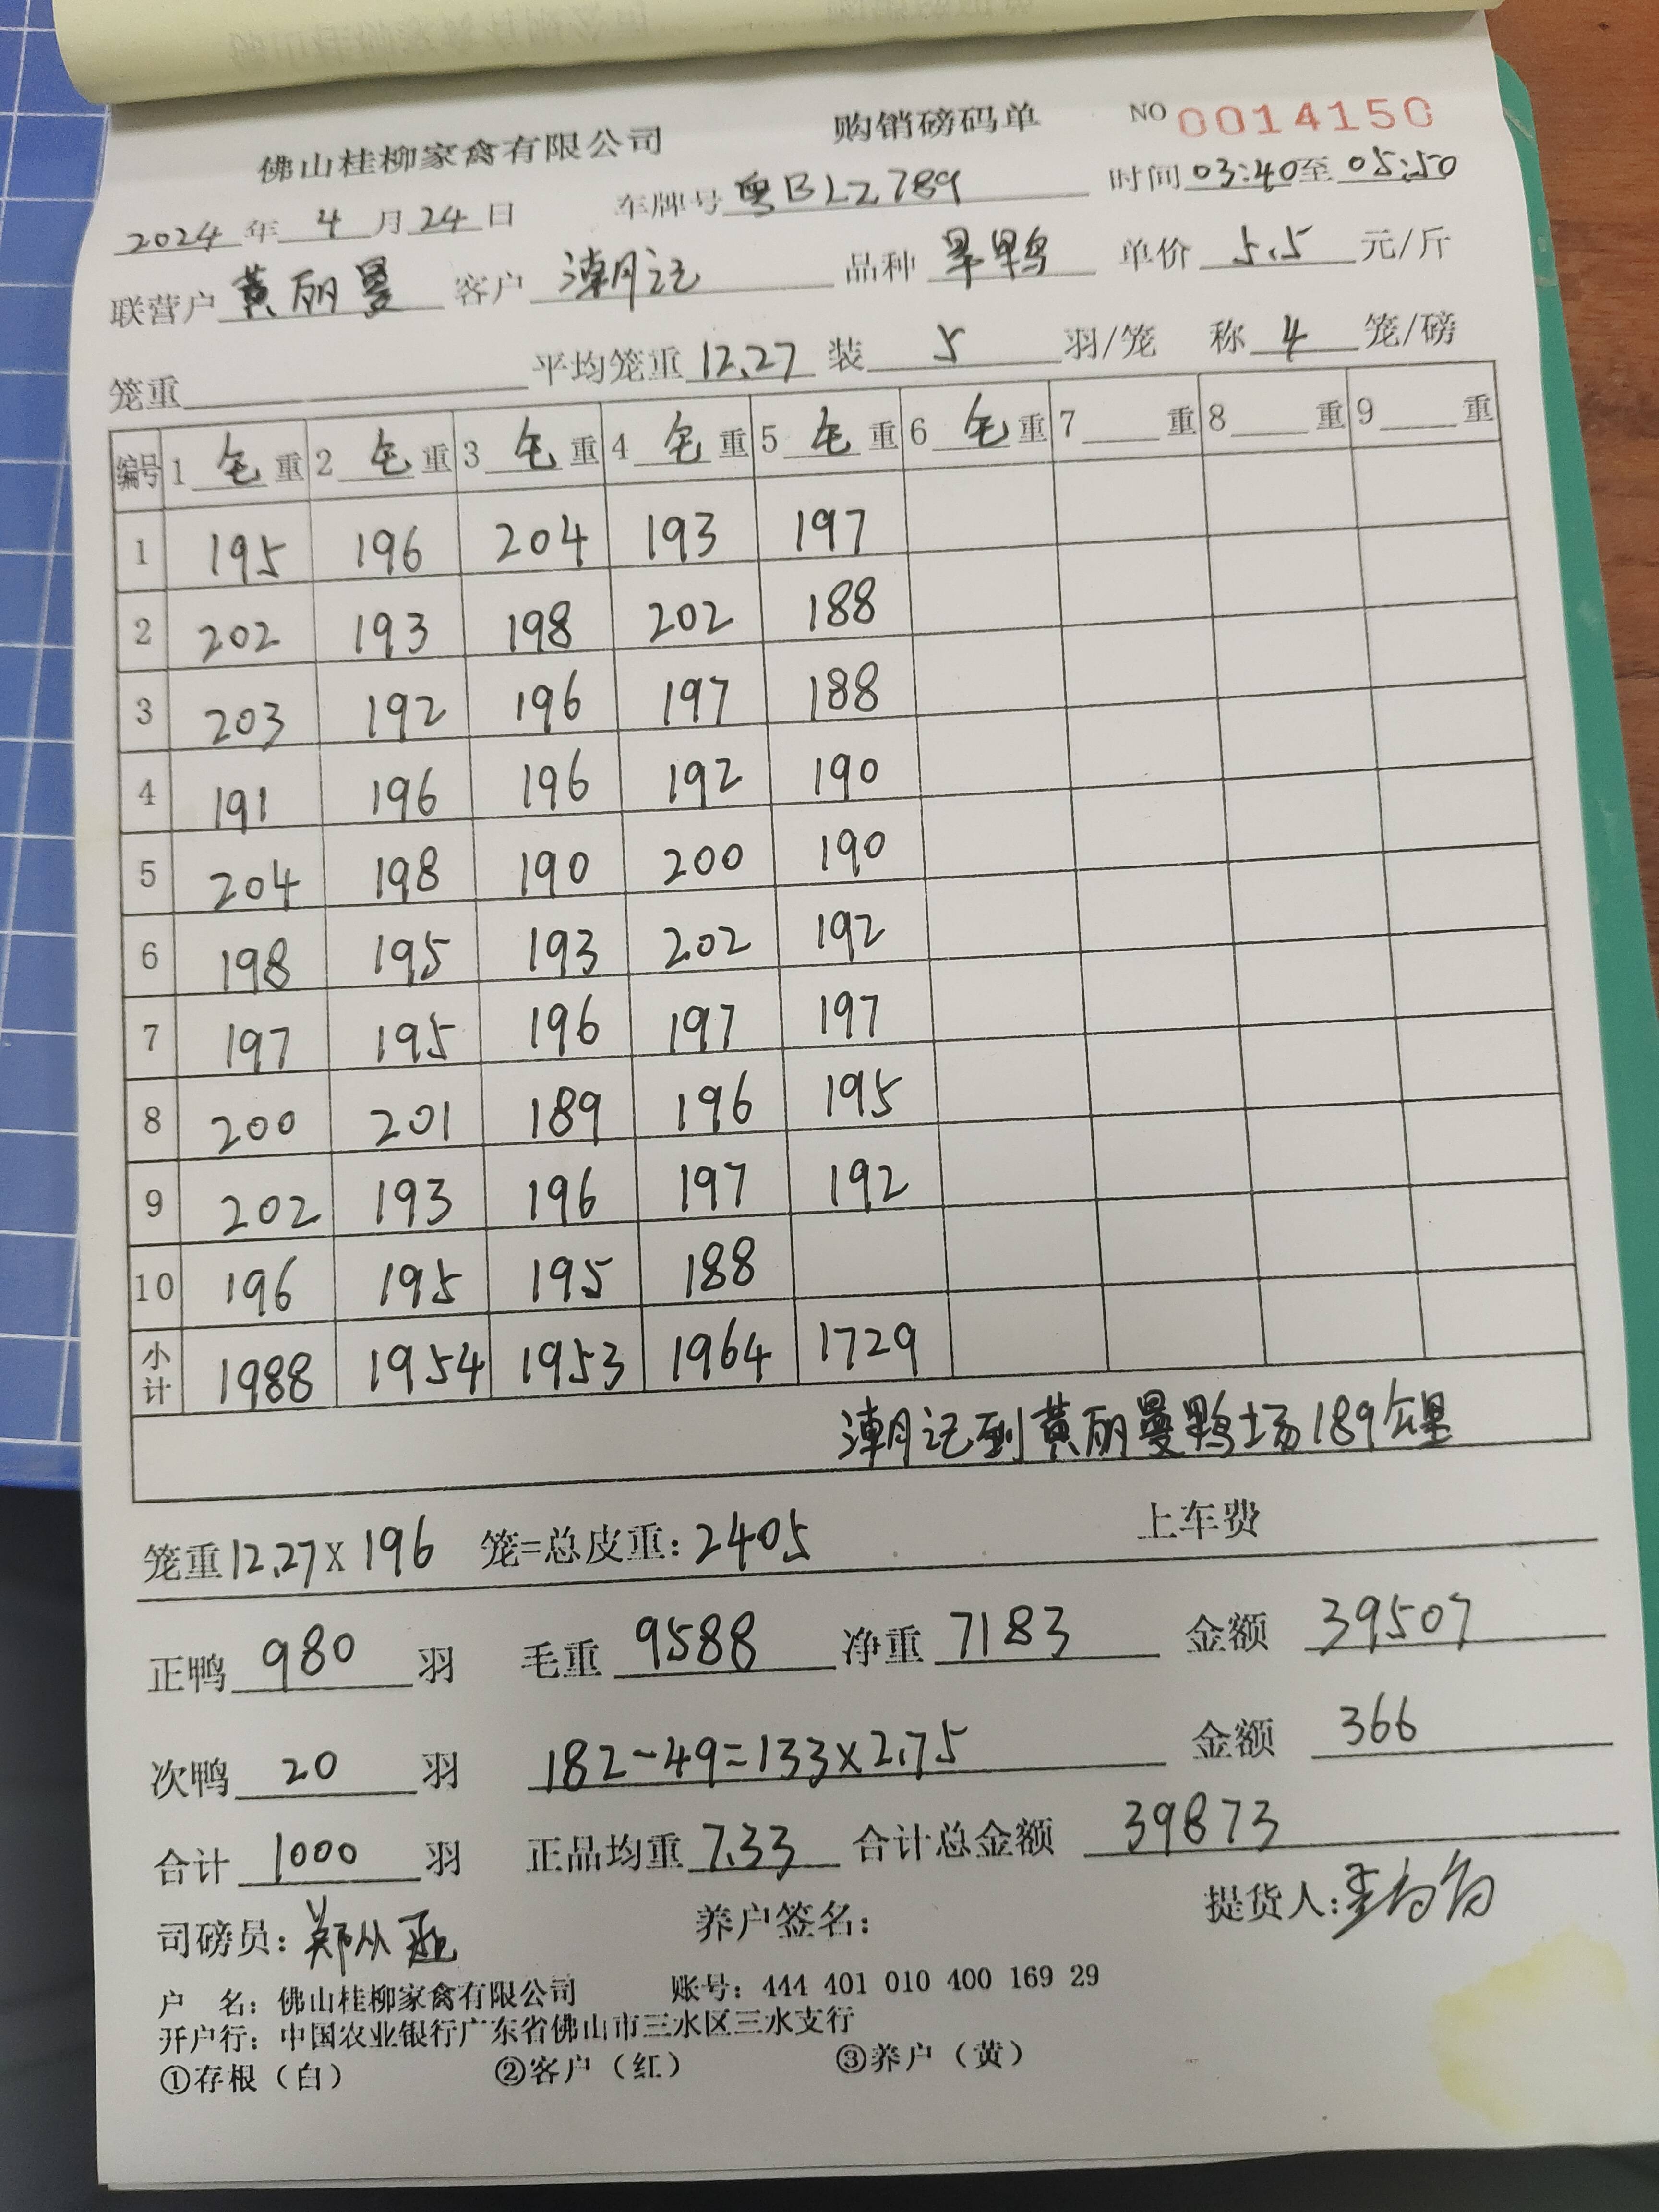 佛山桂柳家禽有限公司 购销磅码单 NO 0014150
2024年4月24日 车牌号粤BLZ789 时间03:40至05:50
联营户黄丽曼 客户潮记 品种旱鸭 单价5.5元/斤
笼重 平均笼重12.27 装5羽/笼 称4笼/磅
编号 1毛重 2毛重 3毛重 4毛重 5毛重 6毛重 7重 8重 9重
1 195 196 204 193 197
2 202 193 198 202 188
3 203 192 196 197 188
4 191 196 196 192 190
5 204 198 190 200 190
6 198 195 193 202 192
7 197 195 196 197 197
8 200 201 189 196 195
9 202 193 196 197 192
10 196 195 195 188
小计 1988 1954 1953 1964 1729
潮记到黄丽曼鸭场189公里
笼重12.27X196 笼=总皮重:2405 上车费
正鸭980羽 毛重9588 净重7183 金额39507
次鸭20羽 182-49=133×2.75 金额366
合计1000羽 正品均重7.33 合计总金额39873
司磅员:郑从 养户签名: 提货人:
户 名:佛山桂柳家禽有限公司 账号:444 401 010 400 169 29
开户行:中国农业银行广东省佛山市三水区三水支行
①存根(白) ②客户(红) ③养户(黄)